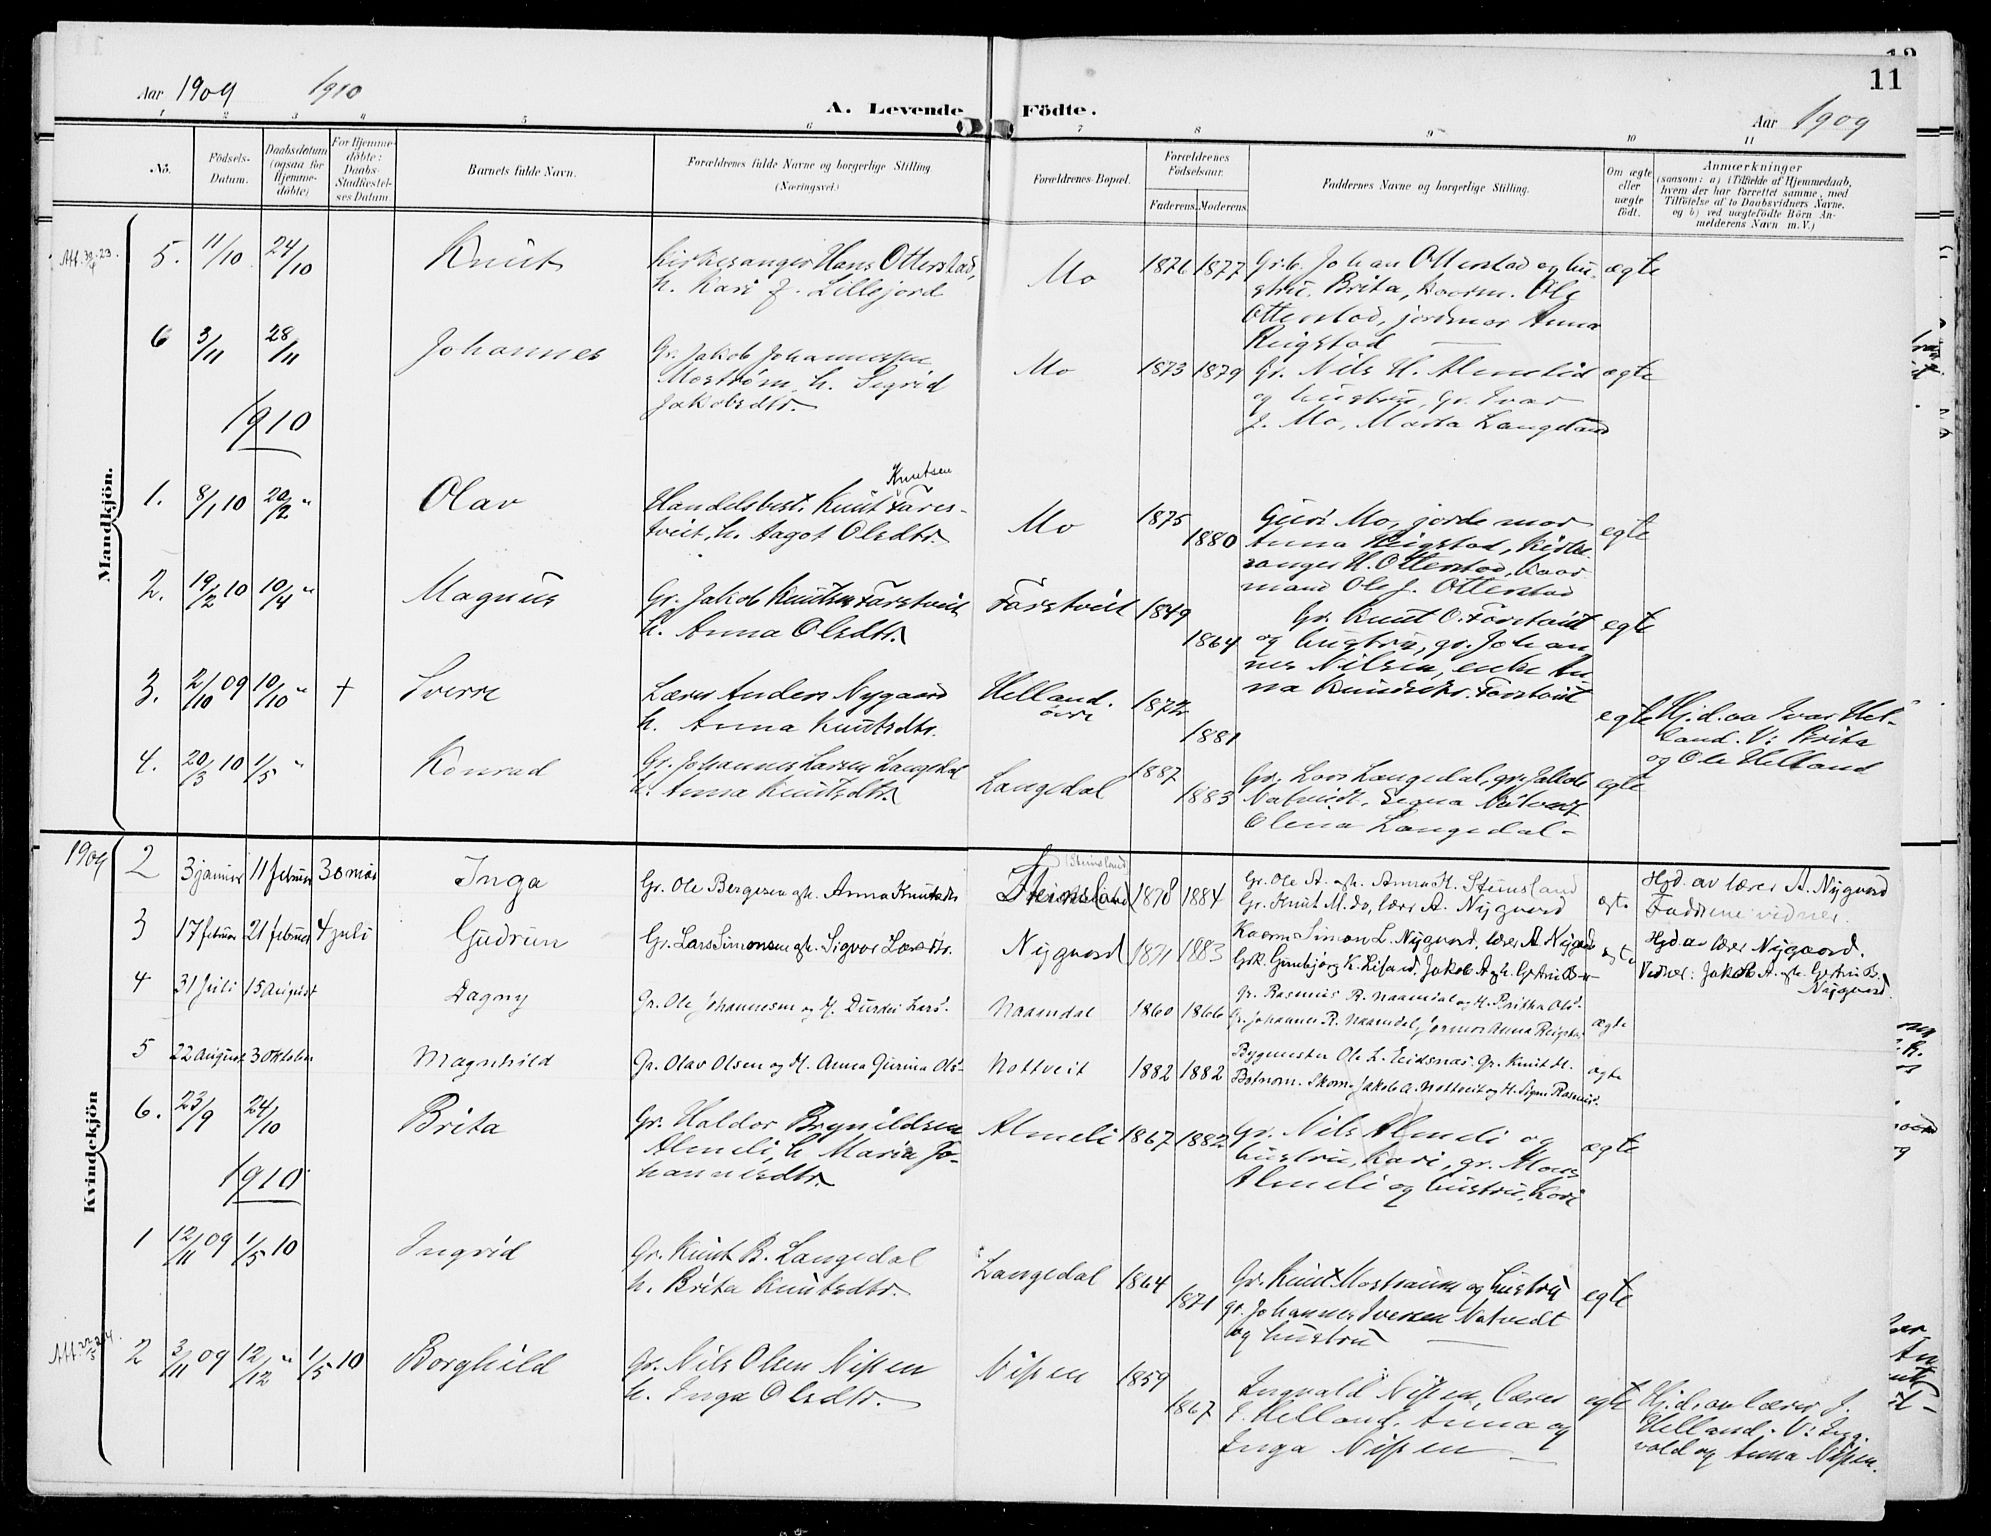 11
Aar 1909 1910
A. Levende Födte.
Aar 1909
1 2 3 4 5 6 7 8 9 10 11
No.
Födsels-Datum.
Daabsdatum (ogsaa for Hjemme-döbte)
For Hjemme-döbte: Daabs-Stadfæstel-ses Datum.
Barnets fulde Navn.
Forældrenes fulde Navne og borgerlige Stilling (Næringsvei.)
Forældrenes Bopæl.
Forældrenes Födselsaar.
Faderens. Moderens.
Faddernes Navne og borgerlige Stilling.
Om ægte eller uægte födt.
Anmærkninger
(saasom: a) i Tilfælde af Hjemmedaab, hvem der har forrettet samme, med Tilföielse af to Daabsvidners Navne, og b) ved uægtefödte Börn An-melderens Navn m. V.)
Mandkjön.
5. 11/10 24/10 Knut Kirkesanger Hans Otterstad, h. Kari f. Lillejord Mo 1876 1877 Gr. Johan Otterstad og hu-
stru Brita, kaarm. Ole
Otterstad, jordmor Anna
Reigstad ægte
6 3/11 28/11 Johannes Gr. Jakob Johannessen
Mostrøm, h. Sigrid
Jakobsdtr. Mo 1873 1879 Gr. Nils H. Almelid
og hustru, gr. Ivar
J. Mo, Marta Langedal ægte
1910
1. 8/1 10 20/2 " Olav Handelsbest. Knut Knutsen Fares-
tveit, h. Aagot Olsdtr. Mo 1875 1880 Guri Mo, jordemor
Anna Reigstad, kirke
sanger H. Otterstad, kaar
mand Ole J. Otterstad egte
2. 19/2 10 10/4 " Magnus Gr. Jakob Knutsen Farstveit
h. Anna Olsdtr. Farstveit 1849 1864 Gr. Knut O. Farstveit
og hustru, gr. Johan
nes Nilsen, enke An
na Knutsdtr. Farstveit egte
3. 2/10 09 10/10 " + Sverre Lærer Anders Nygaard
h. Anna Knutsdtr. Helland.
øvre 1872 1881 egte Hj.d. av Ivar Hel-
land. V: Brita
og Ole Helland
4. 20/3 10 1/5 " Konrad Gr. Johannes Larsen Langedal
h. Anna Knutsdtr. Langedal 1887 1883 Gr. Lars Langedal, gr. Jakob
Natveidt, Signa Natveit
Olena Langedal - egte
Kvindekjön
1909 2 3 januar 11 februar 30 mai Inga Gr. Ole Bergesen og h. Anna Knutsdtr (Steinsland)
Steinsland 1878 1884 Gr. Ole A. og h. Anna H. Steinsland
Gr. Knut M. do, lærer A. Nygaard ægte Hjd. av lærer A. Nygaard
Faddrene vidner.
3 17 februar 21 februar 4 juli Gudrun Gr. Lars Simonsen og h. Sigvor Larsdtr. Nygaard 1871 1883 Kaarm. Simon L. Nygaard, lærer A. Nygaard
ægte Hjd. av lærer Nygaard.
Vidner: Jakob A. og h. Gjertrud B. Nygaard.
4 31 Juli 15 August Dagny Gr. Ole Johannesen og H. Durdei Lars' Naamdal 1860 1866 Gr. Rasmus R. Naamdal og H. Britha Ols'.
Gr. Johannes R. Naamdal, Jormor Anna Reigstad ægte
5 22 August 3 Oktober Magnhild Gr. Olav Olsen og H. Anna Gurina Ols' Nottveit 1882 1882 Bygmester Ole L. Eidsnes. Gr. Knut H.
Botnom. Skom. Jakob A. Nottveit og H. Signe Rasmus'. ægte
6. 23/9 24/10 Brita Gr. Haldor Brynildsen
Almeli, h. Maria Jo-
hannesdtr. Almeli 1867 1882 Gr. Nils Almeli og
hustru, Kari, gr. Mons
Almeli og hustru, Kari ægte
1910
1 12/11 09 1/5 10 Ingrid Gr. Knut B. Langedal
h. Brita Knutsdtr. Langedal 1864 1871 Gr. Knut Mostraum og hustru
gr. Johannes Iversen Natvedt
og hustru egte
2 3/11 09 12/12 " 1/5 10 Borghild Gr. Nils Olsen Nissen
h. Inga Olsdtr. Nissen 1859 1867 Ingvald Nissen, lærer
J. Helland, Anna og
Inga Nissen egte Hj.d. av lærer J.
Helland. V: Ing-
vald og Anna Nissen.